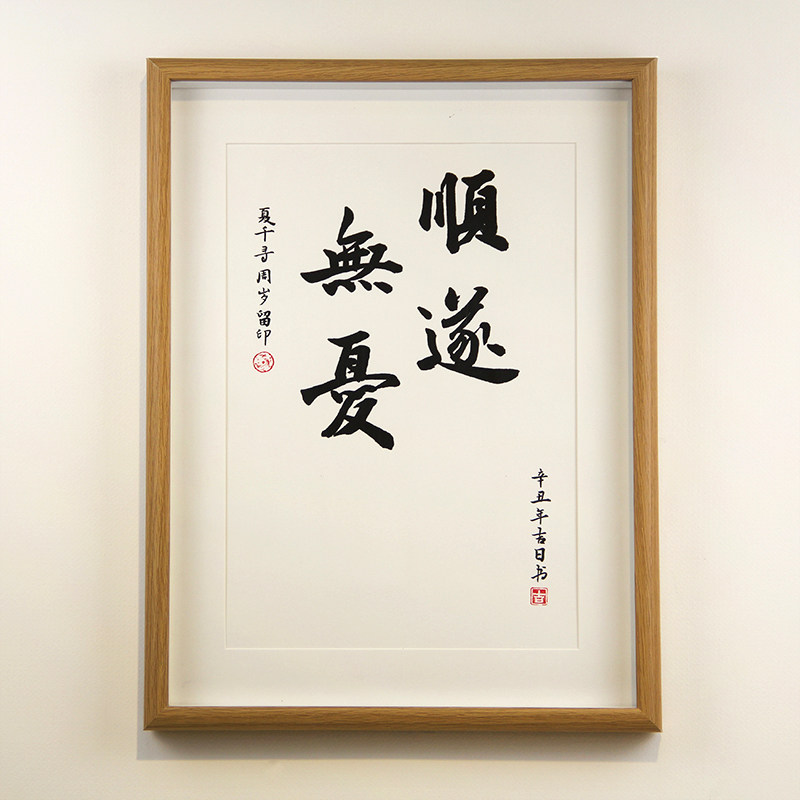 順遂
無憂
夏千寻周岁留印
辛丑年吉日书
吉